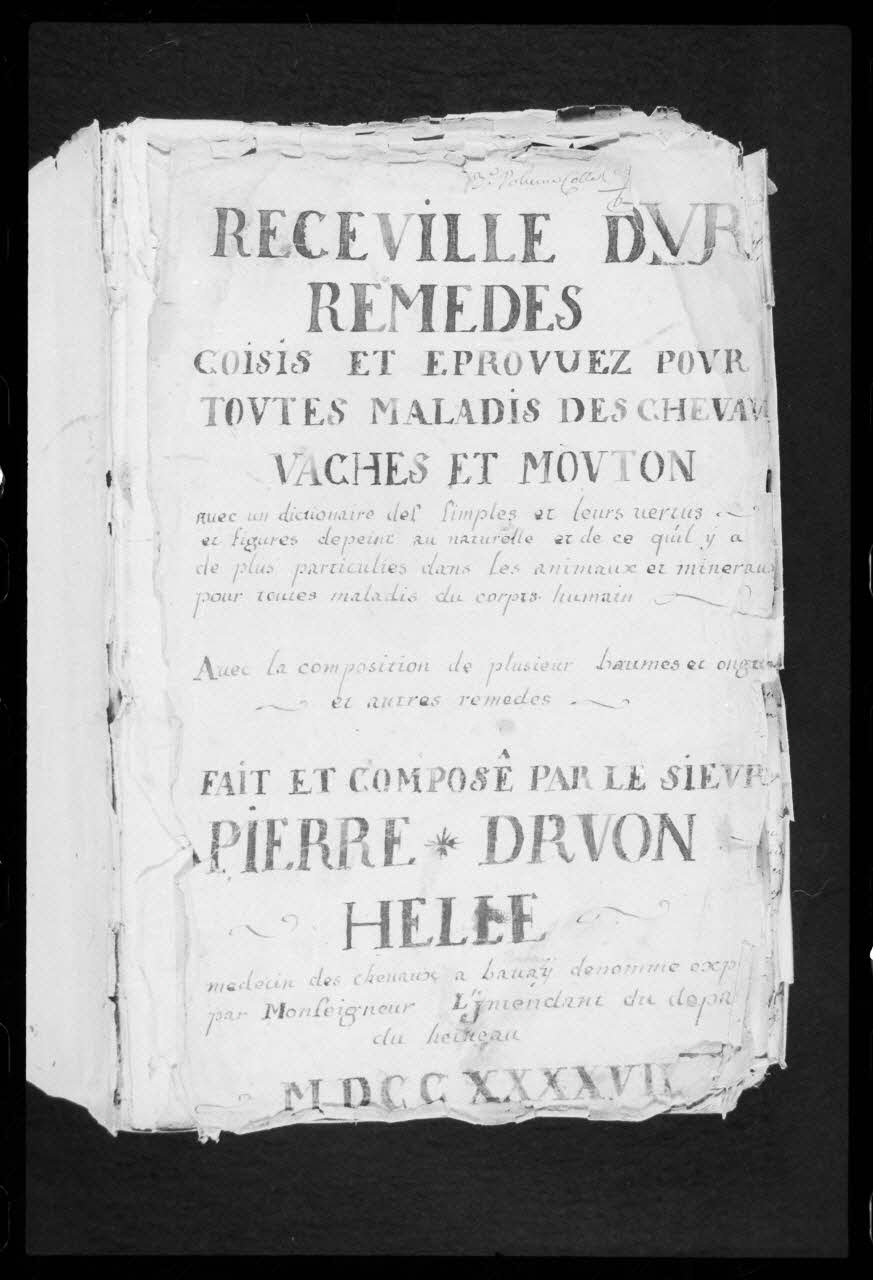 RECEVILLE DVR
REMEDES
COISIS ET EPROVUEZ POVR
TOVTES MALADIS DES CHEVAU
VACHES ET MOVTON
Auec un dictionaire des simples et leurs uertus
et figures depeint au naturelle et de ce qu'il ÿ a
de plus particulies dans les animaux et mineraux
pour toutes maladis du corps humain
Auec la composition de plusieur baumes et ongu
et autres remedes
FAIT ET COMPOSÊ PAR LE SIEVR
PIERRE * DRVON
HELLE
medecin des cheuaux a bauaÿ denomme exp
par Monseigneur L'jntendant du depa
du heineau
MDCCXXXXVII